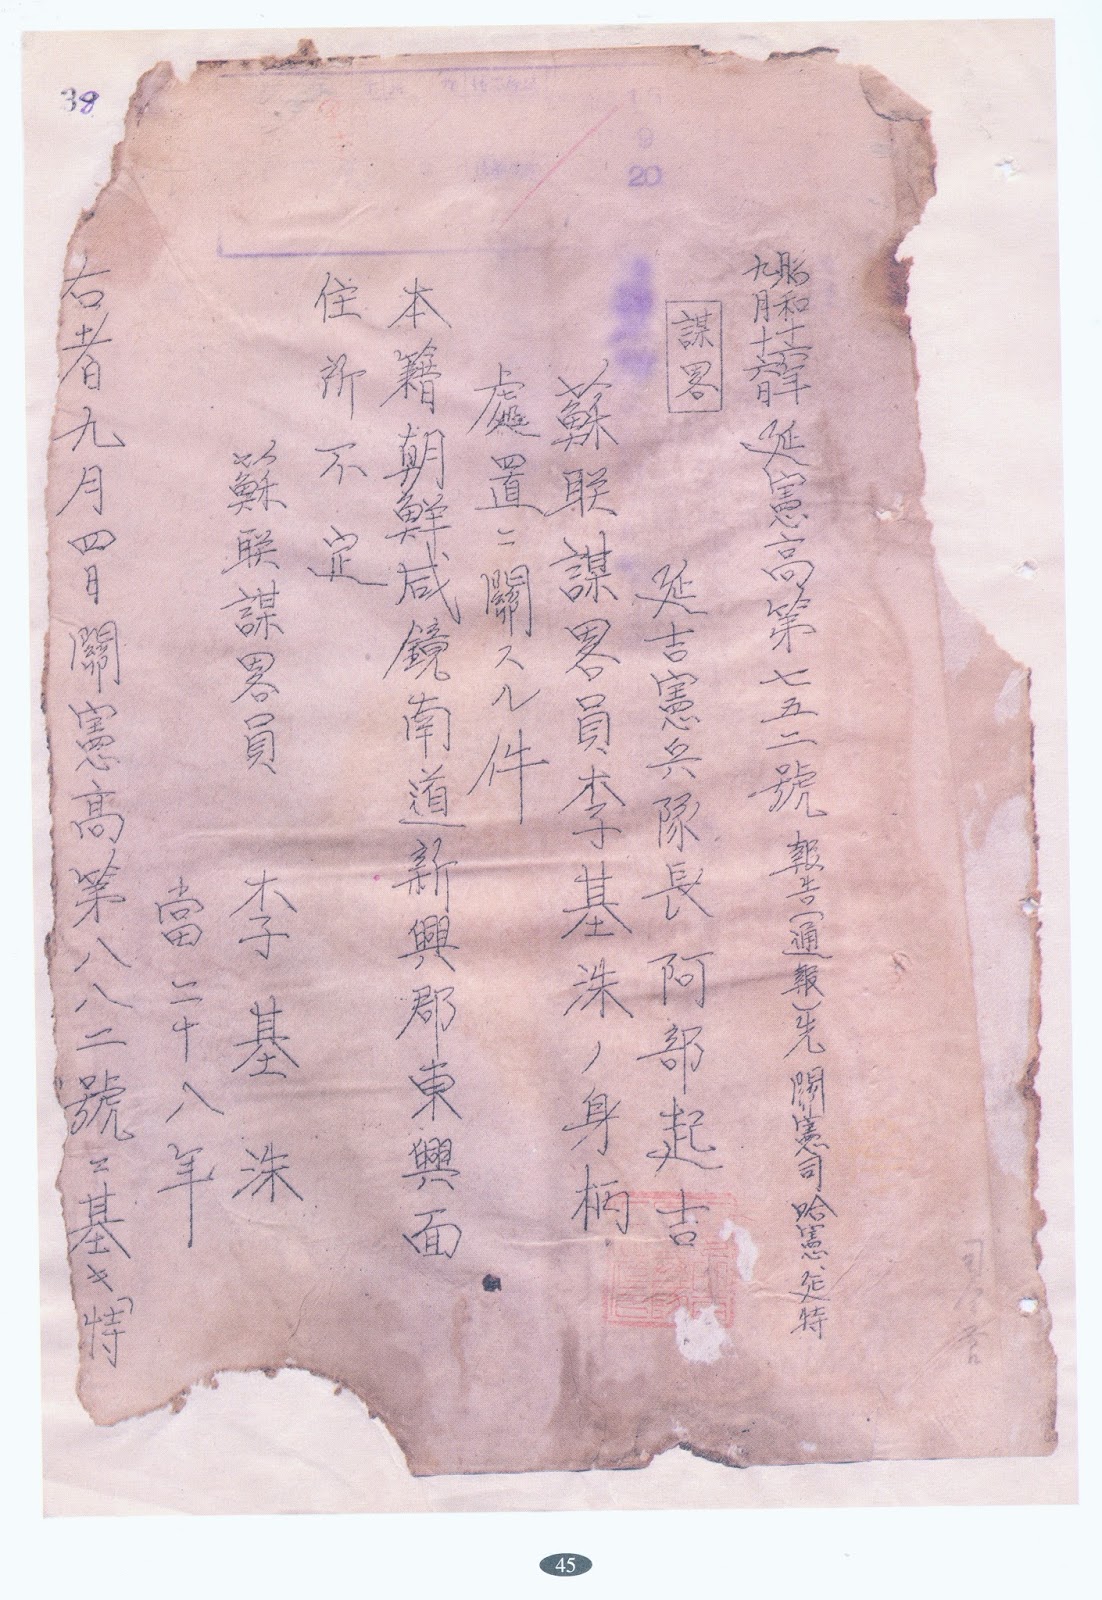 38
9
20
昭和十六年
九月十六日
延憲高第七五二號
報告(通報)先 關憲司 哈憲、延特
謀畧
延吉憲兵隊長 阿部起吉
蘇联謀畧員李基洙ノ身柄
處置ニ關スル件
本籍朝鮮咸鏡南道新興郡東興面
住所不定
蘇联謀畧員 李基洙
當二十八年
右者九月四日關憲高第八八二號ニ基キ「特
45